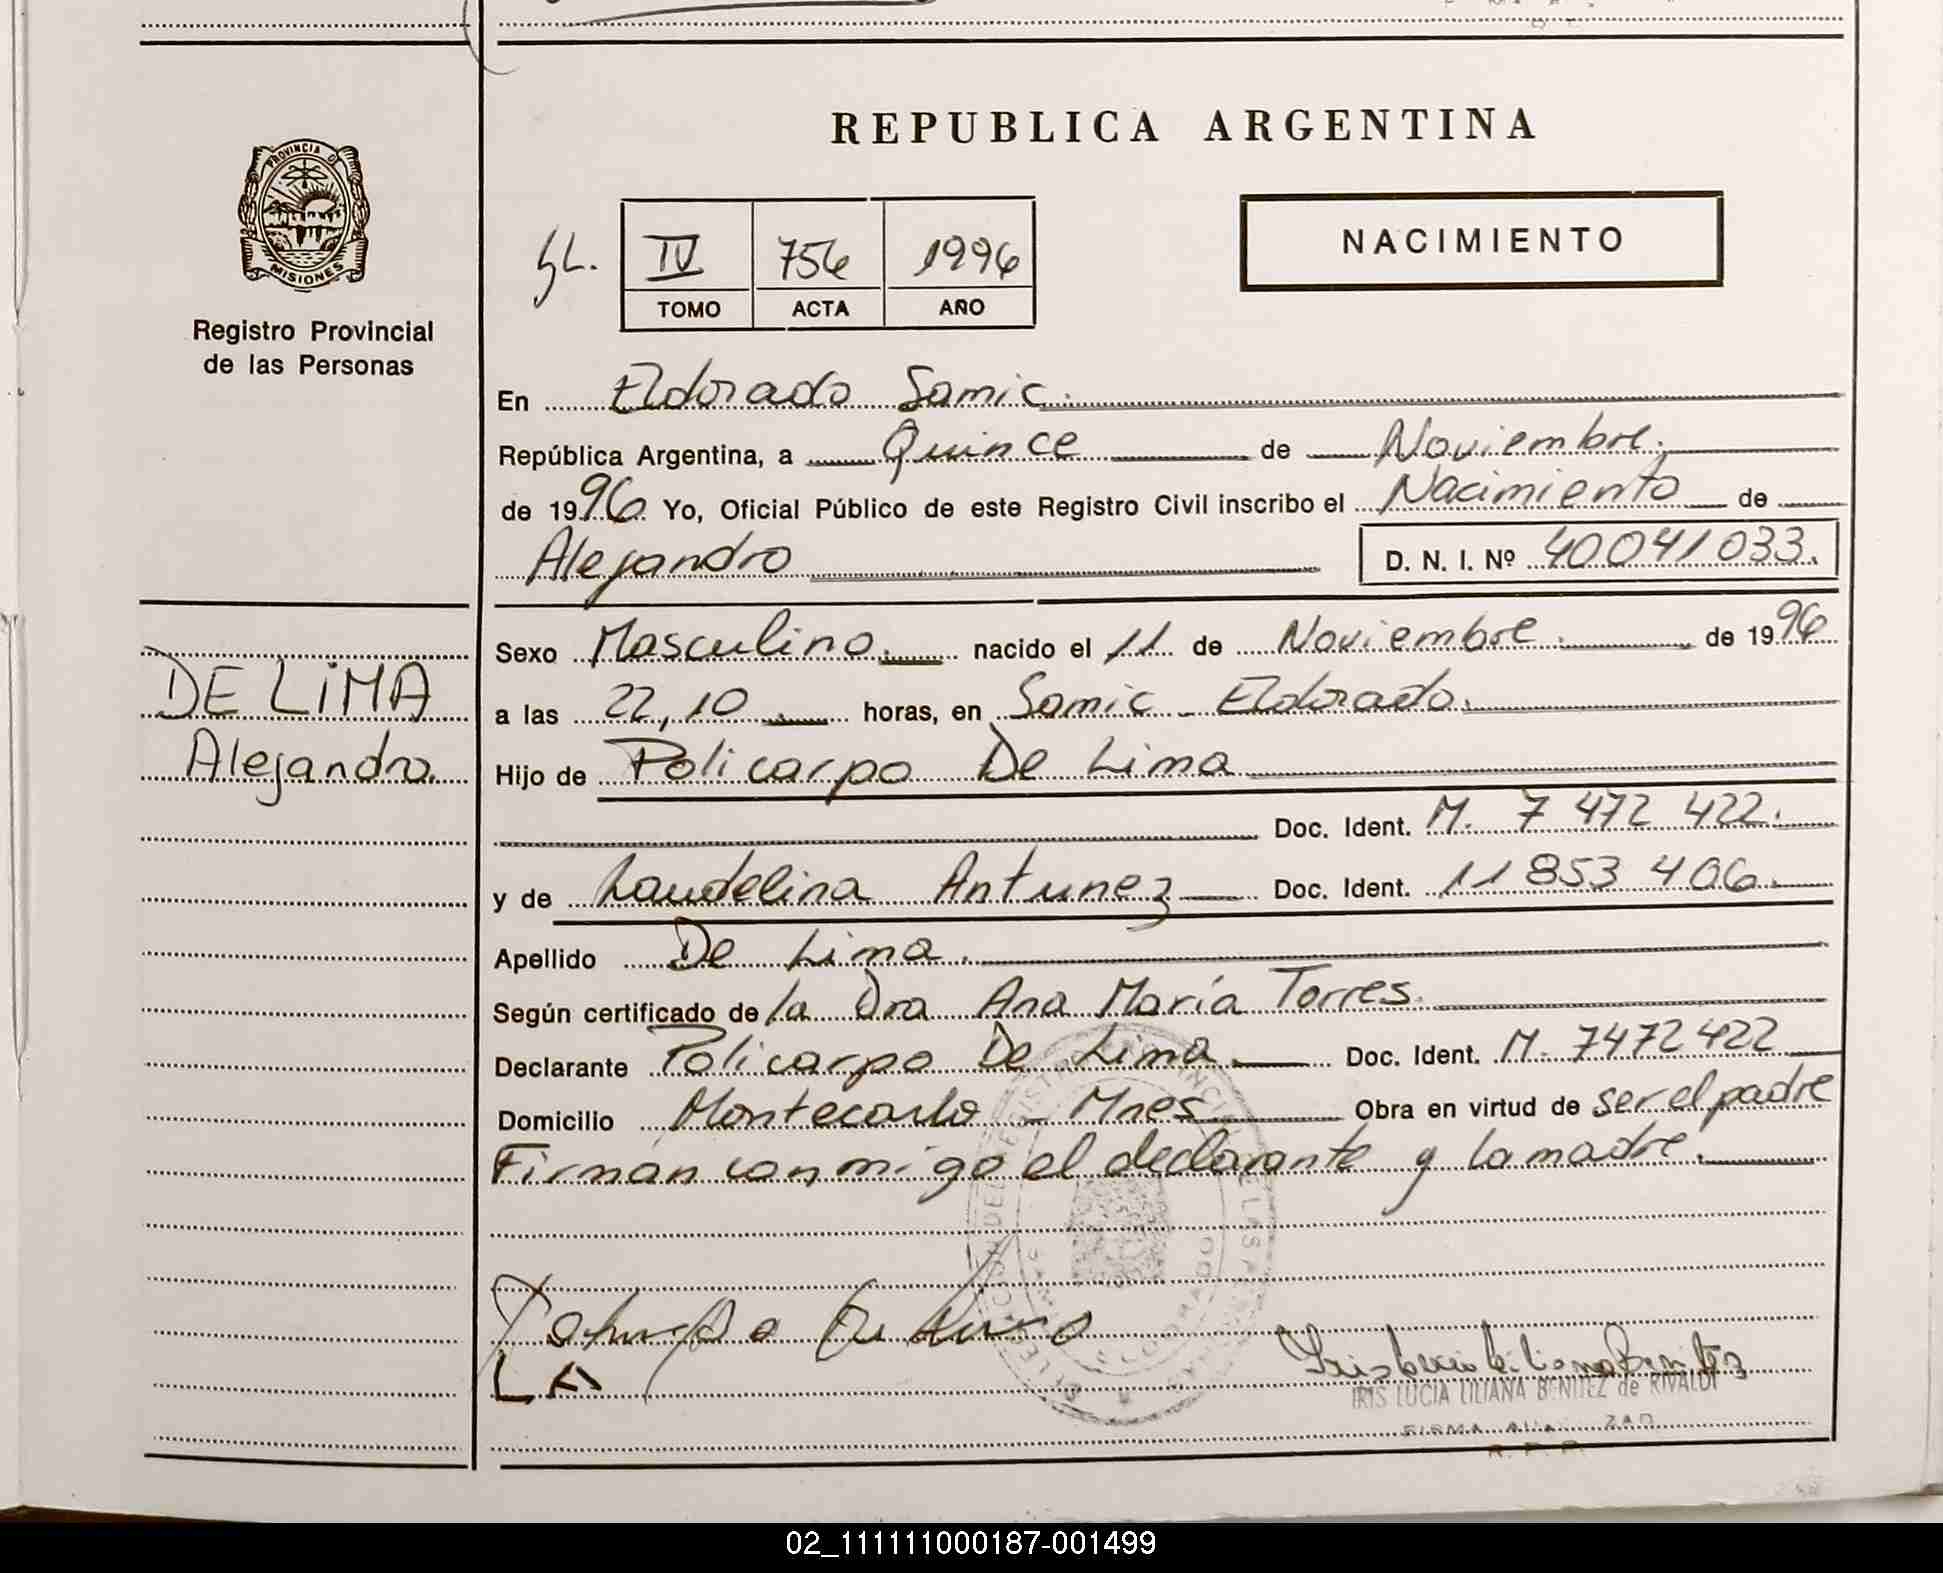 REPUBLICA ARGENTINA
PROVINCIA D
MISIONES
Registro Provincial
de las Personas
IV 756 1996
TOMO ACTA AÑO
NACIMIENTO
En Eldorado Samic.
República Argentina, a Quince de Noviembre.
de 1996 Yo, Oficial Público de este Registro Civil inscribo el Nacimiento de
Alejandro D. N. I. Nº 40041033.
DE LIMA
Alejandro.
Sexo Masculino. nacido el 11 de Noviembre. de 1996
a las 22,10 horas, en Samic - Eldorado.
Hijo de Policarpo De Lima
Doc. Ident. M. 7 472 422.
y de Laudelina Antunez Doc. Ident. 11 853 406.
Apellido De Lima.
Según certificado de la Dra Ana María Torres.
Declarante Policarpo De Lima. Doc. Ident. M. 7472422
Domicilio Montecarlo - Mnes Obra en virtud de ser el padre
Firman conmigo el declarante y la madre.
LA
IRIS LUCIA LILIANA BENITEZ de RIVALDI
R. P. P.
02_111111000187-001499